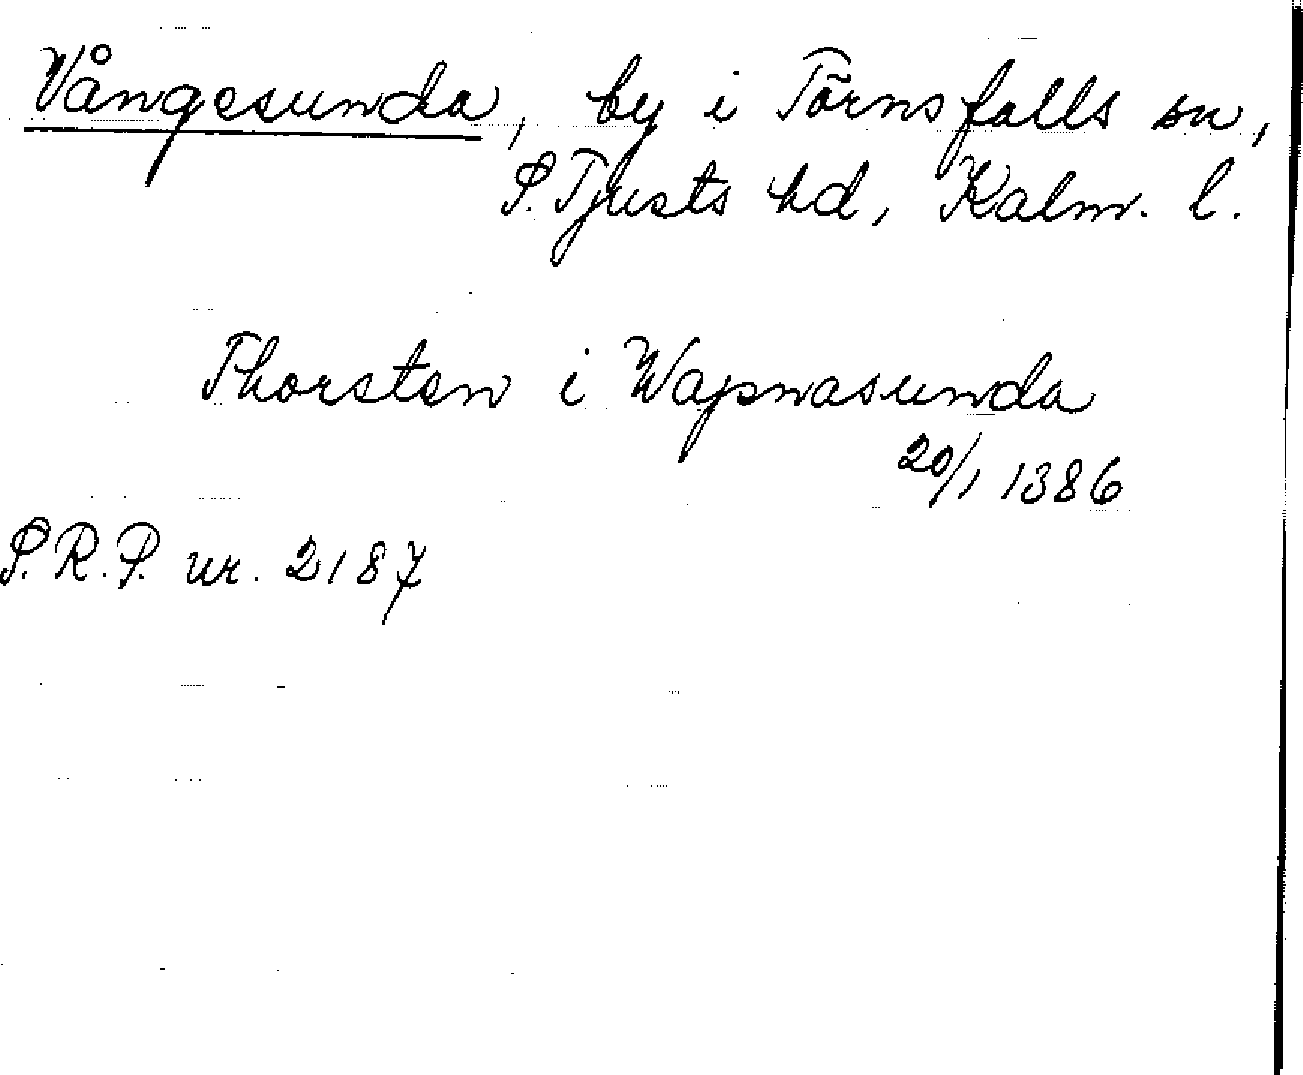 Vångesunda, by i Törnsfalls sn,
S. Tjusts hd, Kalm. l.
Thorsten i Wapnasunda
20/1 1386
S.R.P. nr. 2187